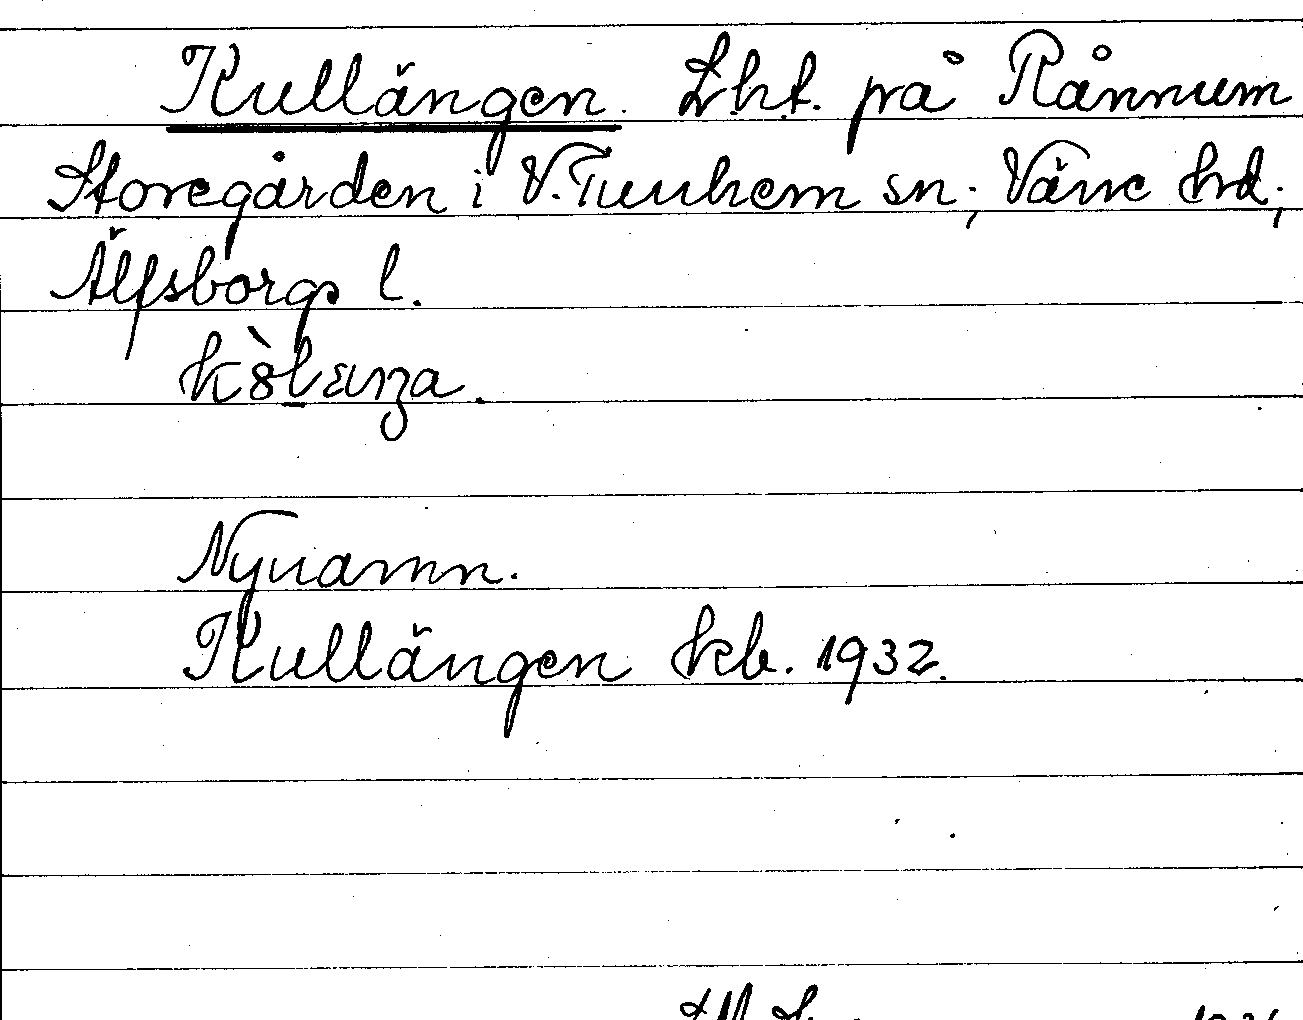 Kullängen. Lht. på Rånnum
Storegården i V. Tunhem sn; Väne hd,
Älfsborgs l.
Nynamn.
Kullängen kb. 1932.